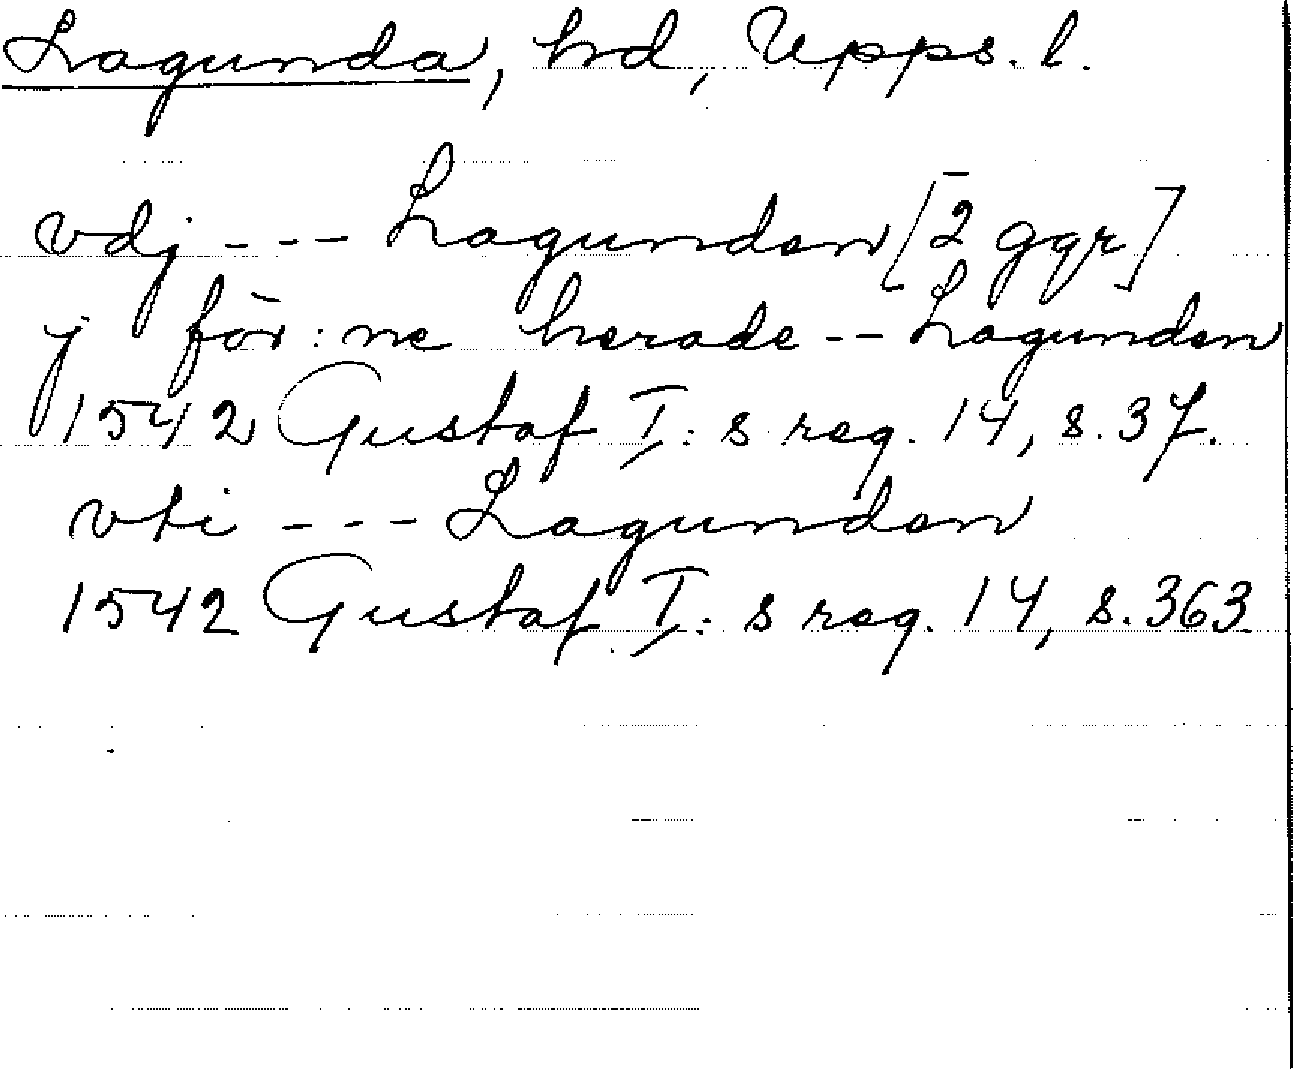 Lagunda, hd, Upps. l.
vdj --- Lagunden [2 ggr]
j för:ne herade -- Lagunden
1542 Gustaf I:s reg. 14, s. 37.
vti --- Lagunden
1542 Gustaf I:s reg. 14, s. 363.